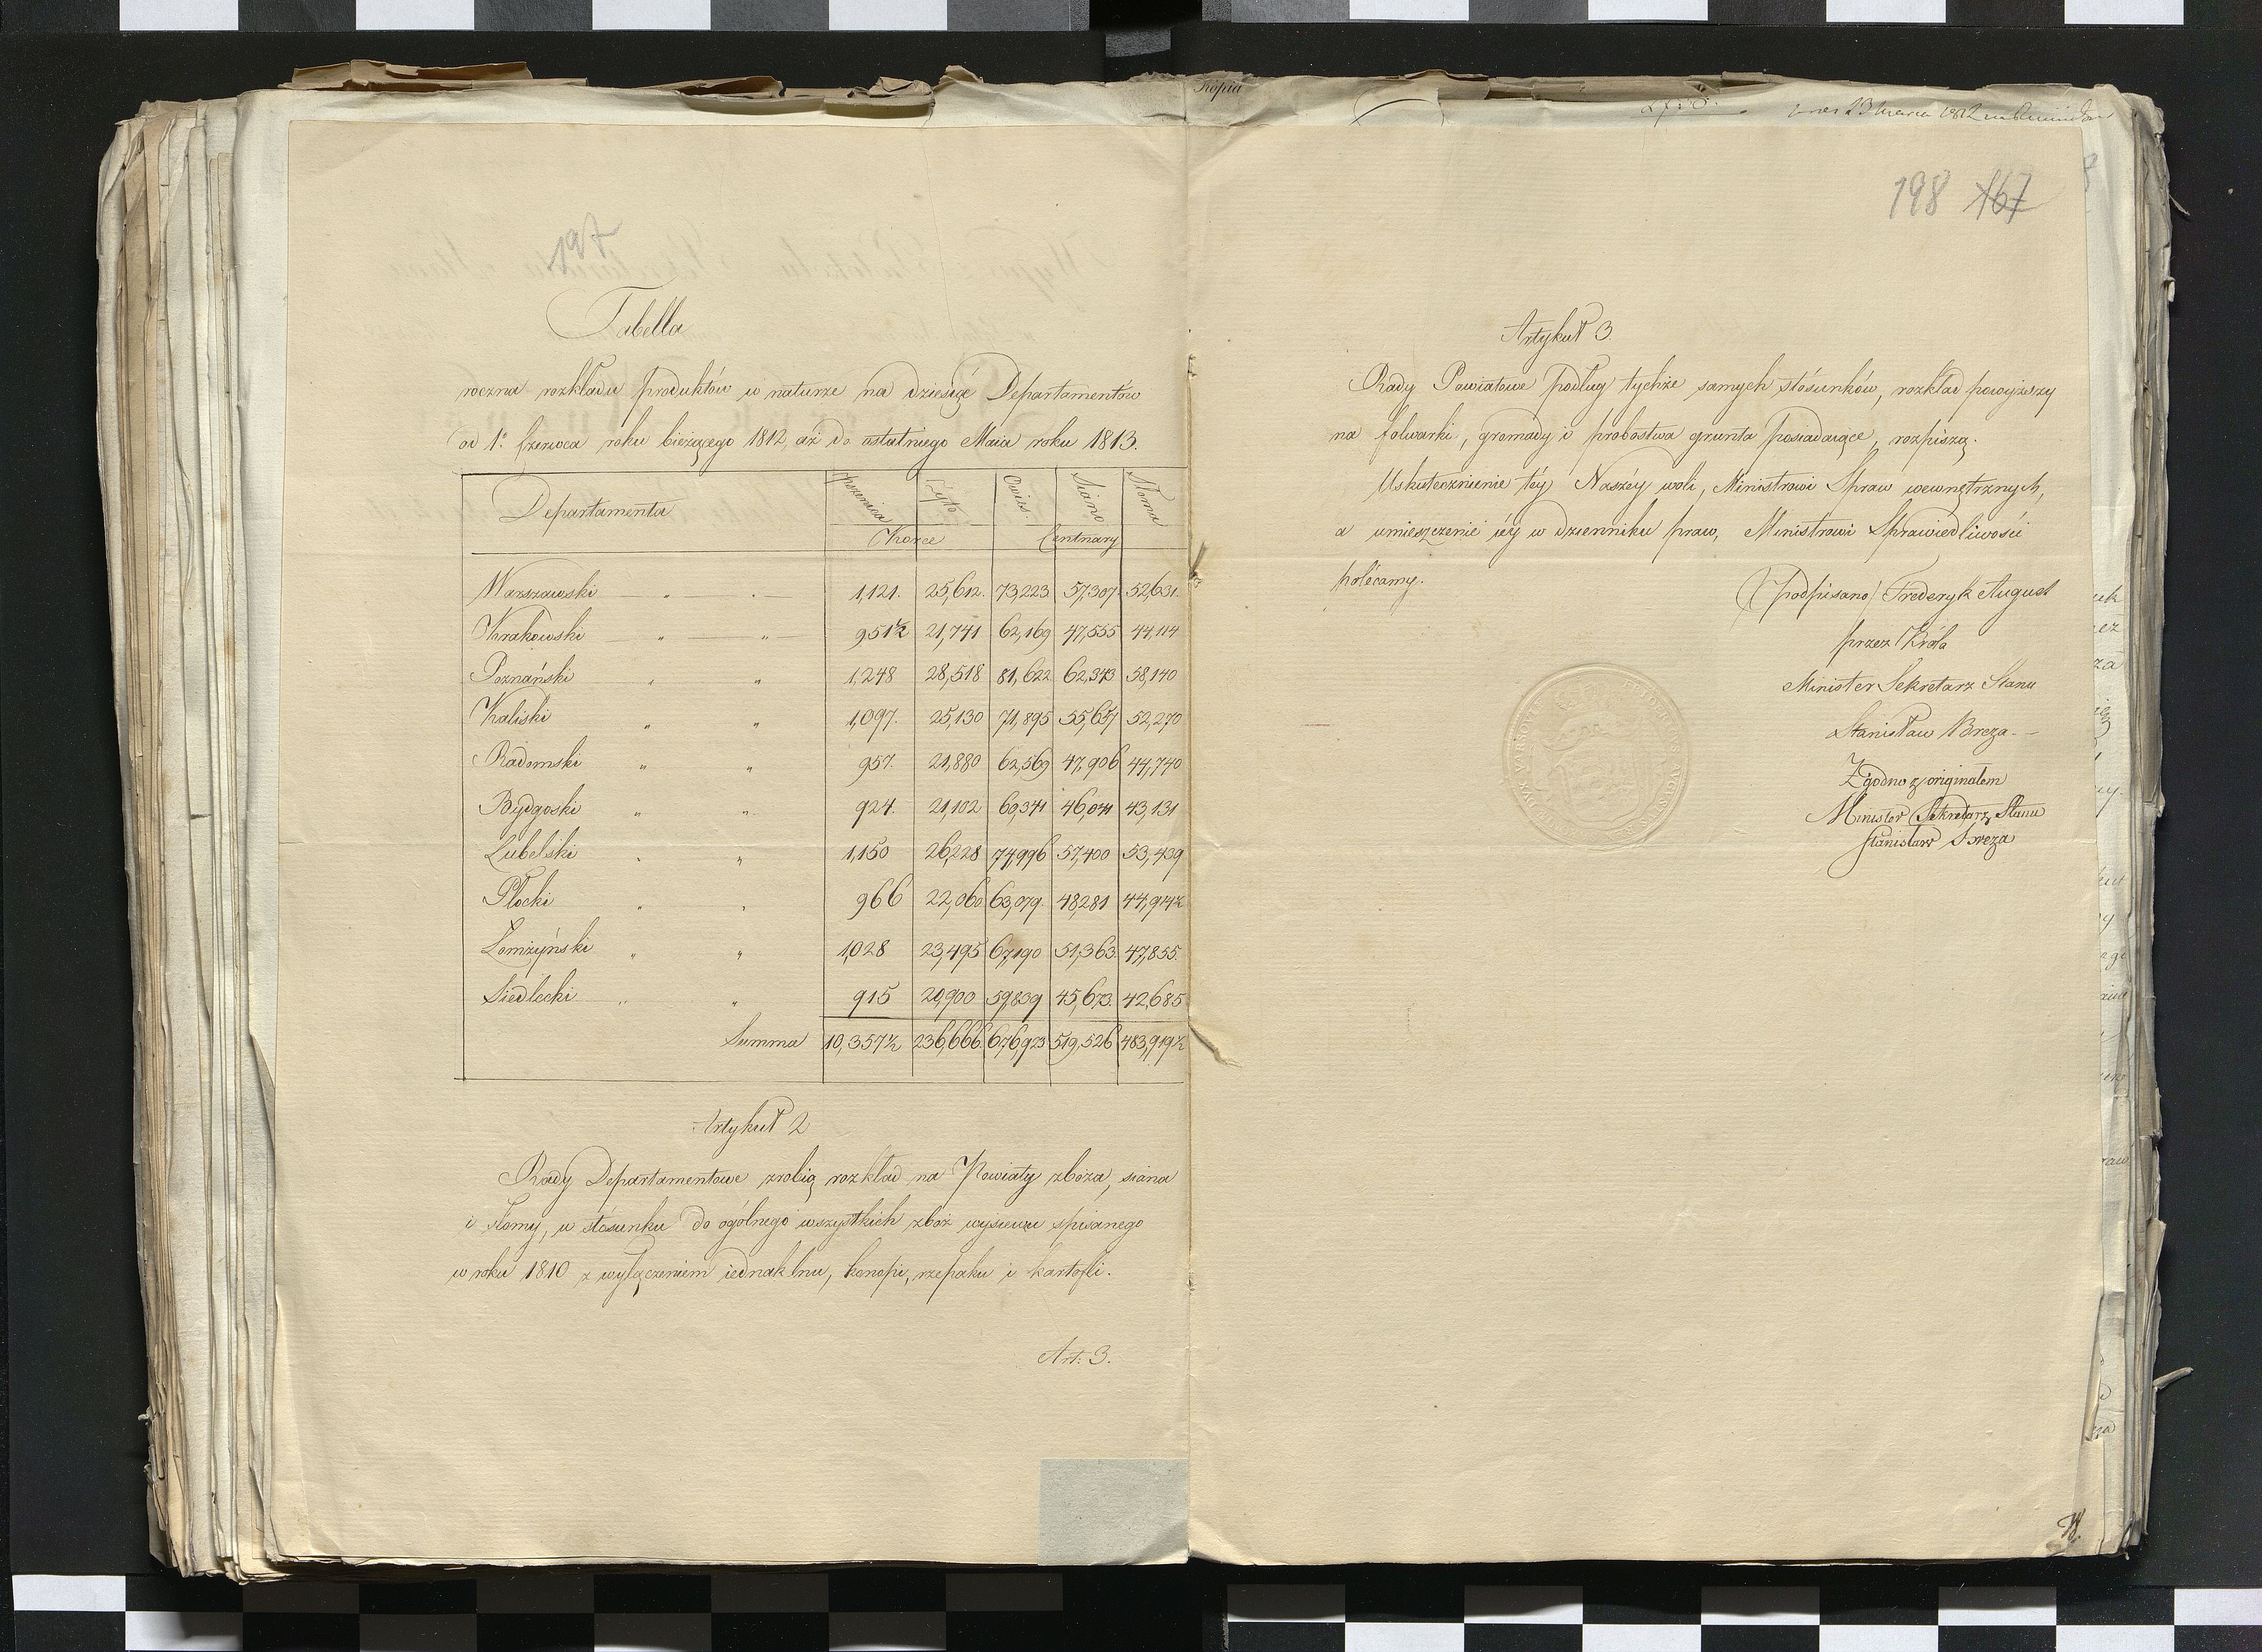 Kopia
197
Tabella
roczna rozkładu produktów w naturze na dziesięć Departamentów
od 1o Czerwca roku bieżącego 1812, aż do ostatniego Maia roku 1813.
Departamenta Pszenica Żyto Owies. Siano Słoma
Korce Centnary
Warszawski 1,121. 25,612. 73,223 57,307. 52,631.
Krakowski 951½ 21,741 62,169 47,555 44,114
Poznański 1,248 28,518 81,622 62,343 58,140
Kaliski 1,097. 25,130 71,895 55,657 52,270
Radomski 957. 21,880 62,569 47,906 44,740
Bydgoski 924. 21,102 60,341 46,041 43,131
Lubelski 1,150 26,228 74,996 57,400 53,439
Płocki 966 22,060 63,079. 48,281 44,914½
Łomżyński 1,028 23,495 67,190 51,363. 47,855.
Siedlecki 915 20,900 59,839 45,673. 42,685
Summa 10,357½ 236,666 676,923 519,526 483,919½
Artykuł 2
Rady Departamentowe zrobią rozkład na Powiaty zboża, siana
i słomy, w stósunku do ogólnego wszystkich zboż wysiewu spisanego
w roku 1810 z wyłączeniem iednak lnu, konopi, rzepaku i kartofli.
Art: 3.
23 Marca 1812
198 167
Artykuł 3.
Rady Powiatowe podług tychże samych stósunków, rozkład powyższy
na folwarki, gromady i probostwa grunta posiadaiące, rozpiszą.
Uskutecznienie téy Naszéy woli, Ministrowi Spraw wewnętrznych,
a umieszczenie iéy w dzienniku praw, Ministrowi Sprawiedliwości
polécamy.
(podpisano) Frederyk August
przez Króla
Minister Sekretarz Stanu
Stanisław Breza.
Zgodno z originałem
Minister Sekretarz Stanu
Stanisław Breza